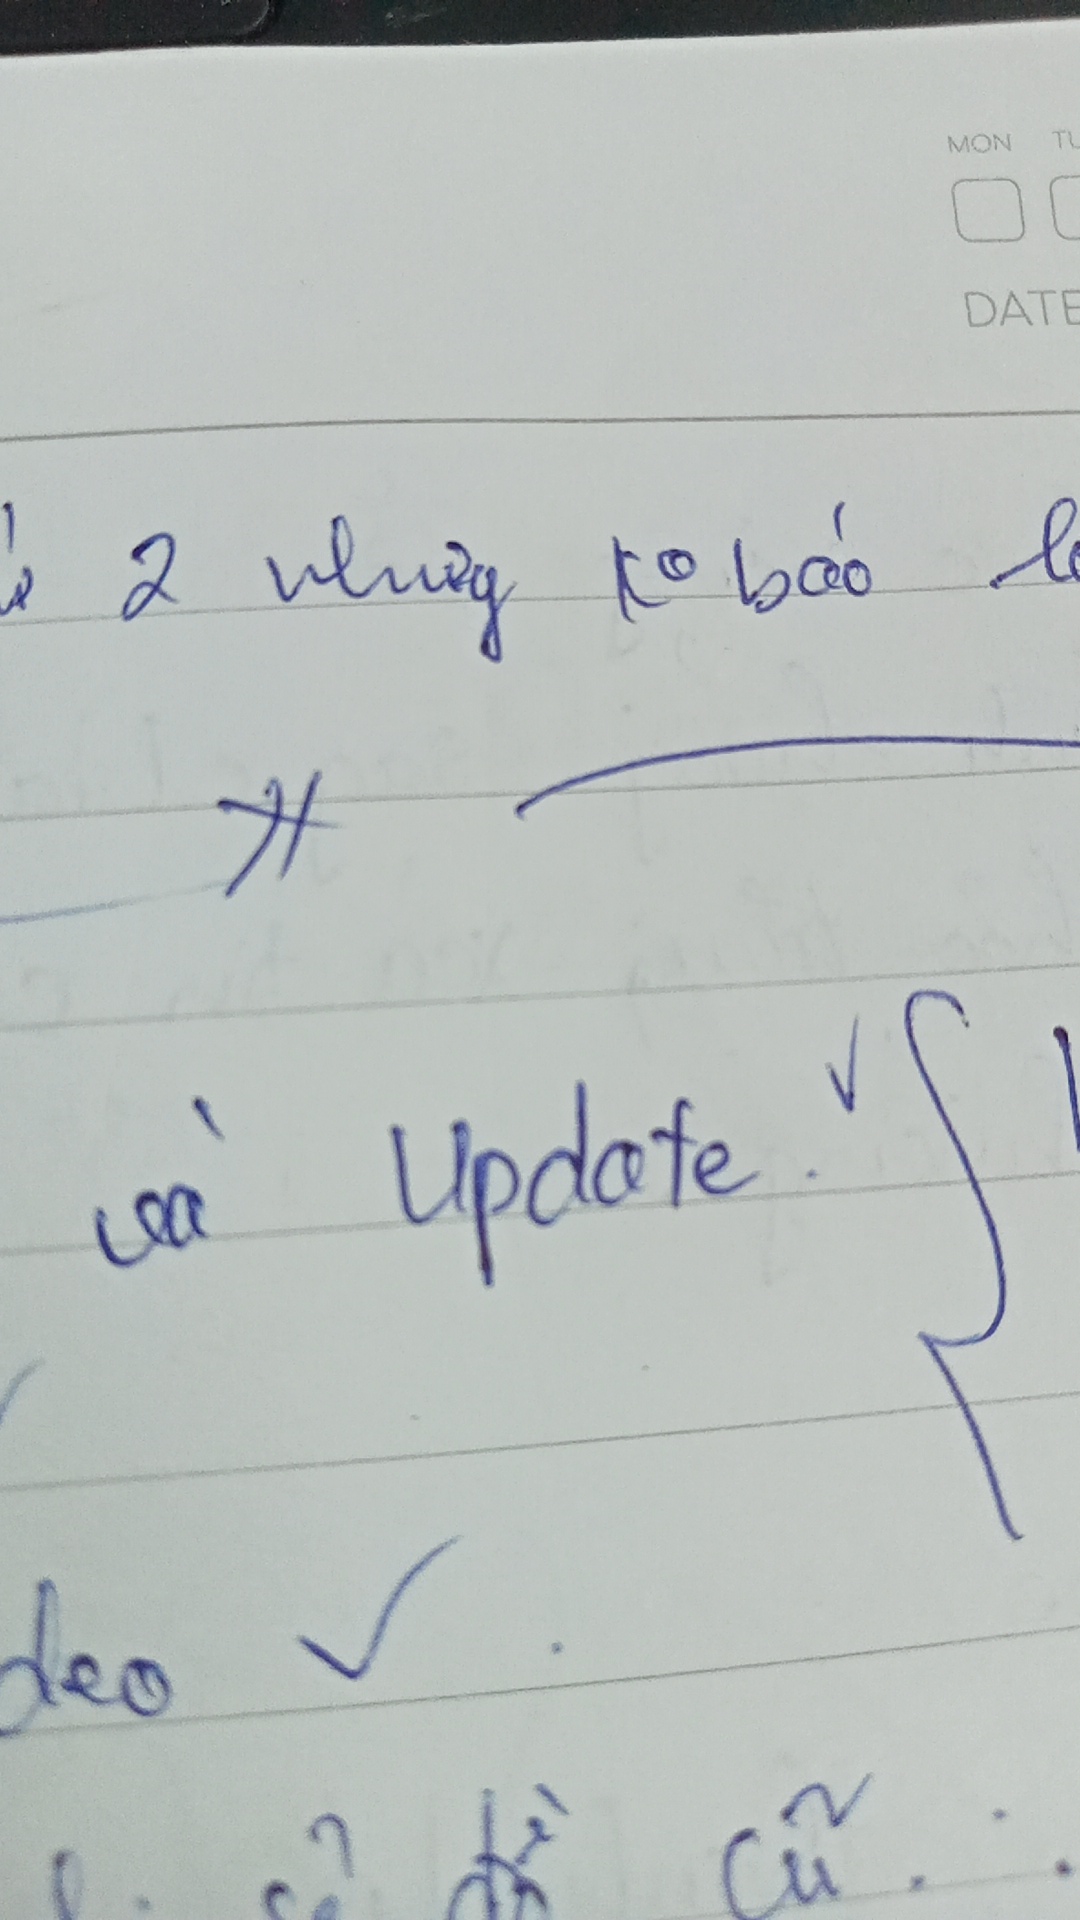 MON
DATE
2 nhưng ko báo
và Update. ✓
deo ✓ .
cũ.